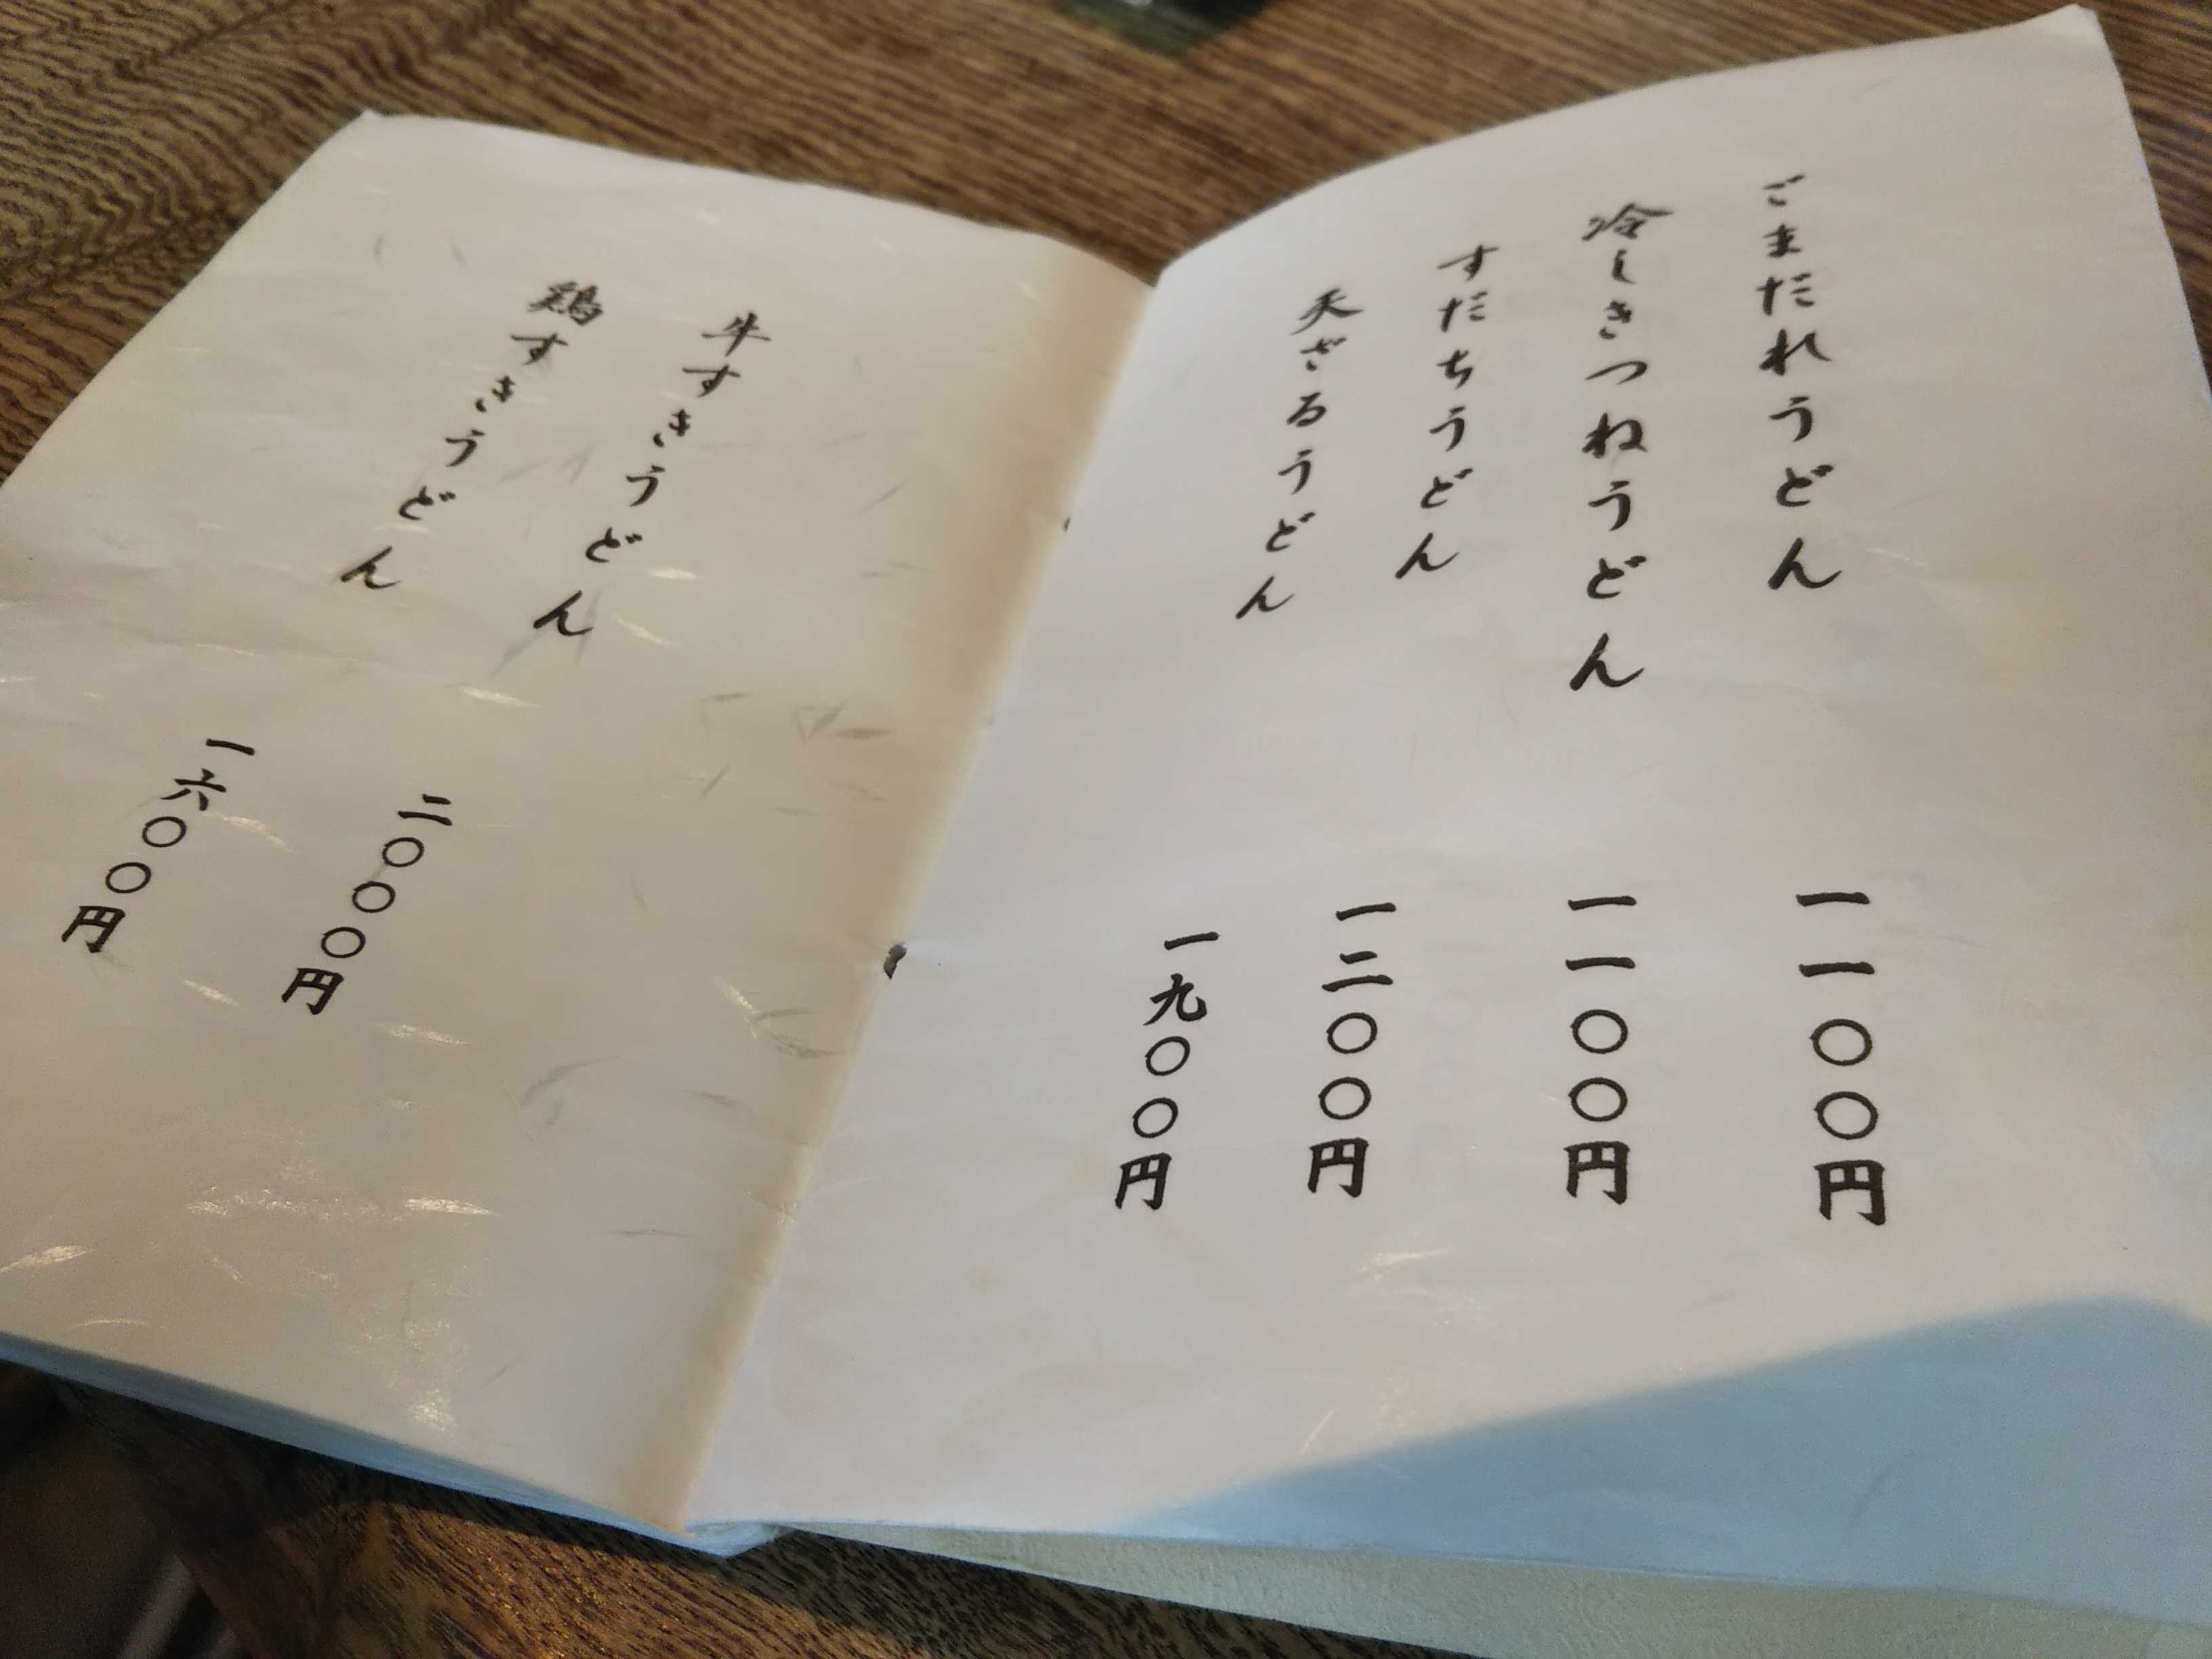 ごまだれうどん 一一〇〇円
冷しきつねうどん 一一〇〇円
すだちうどん 一二〇〇円
天ざるうどん 一九〇〇円
牛すきうどん 二〇〇〇円
鶏すきうどん 一六〇〇円